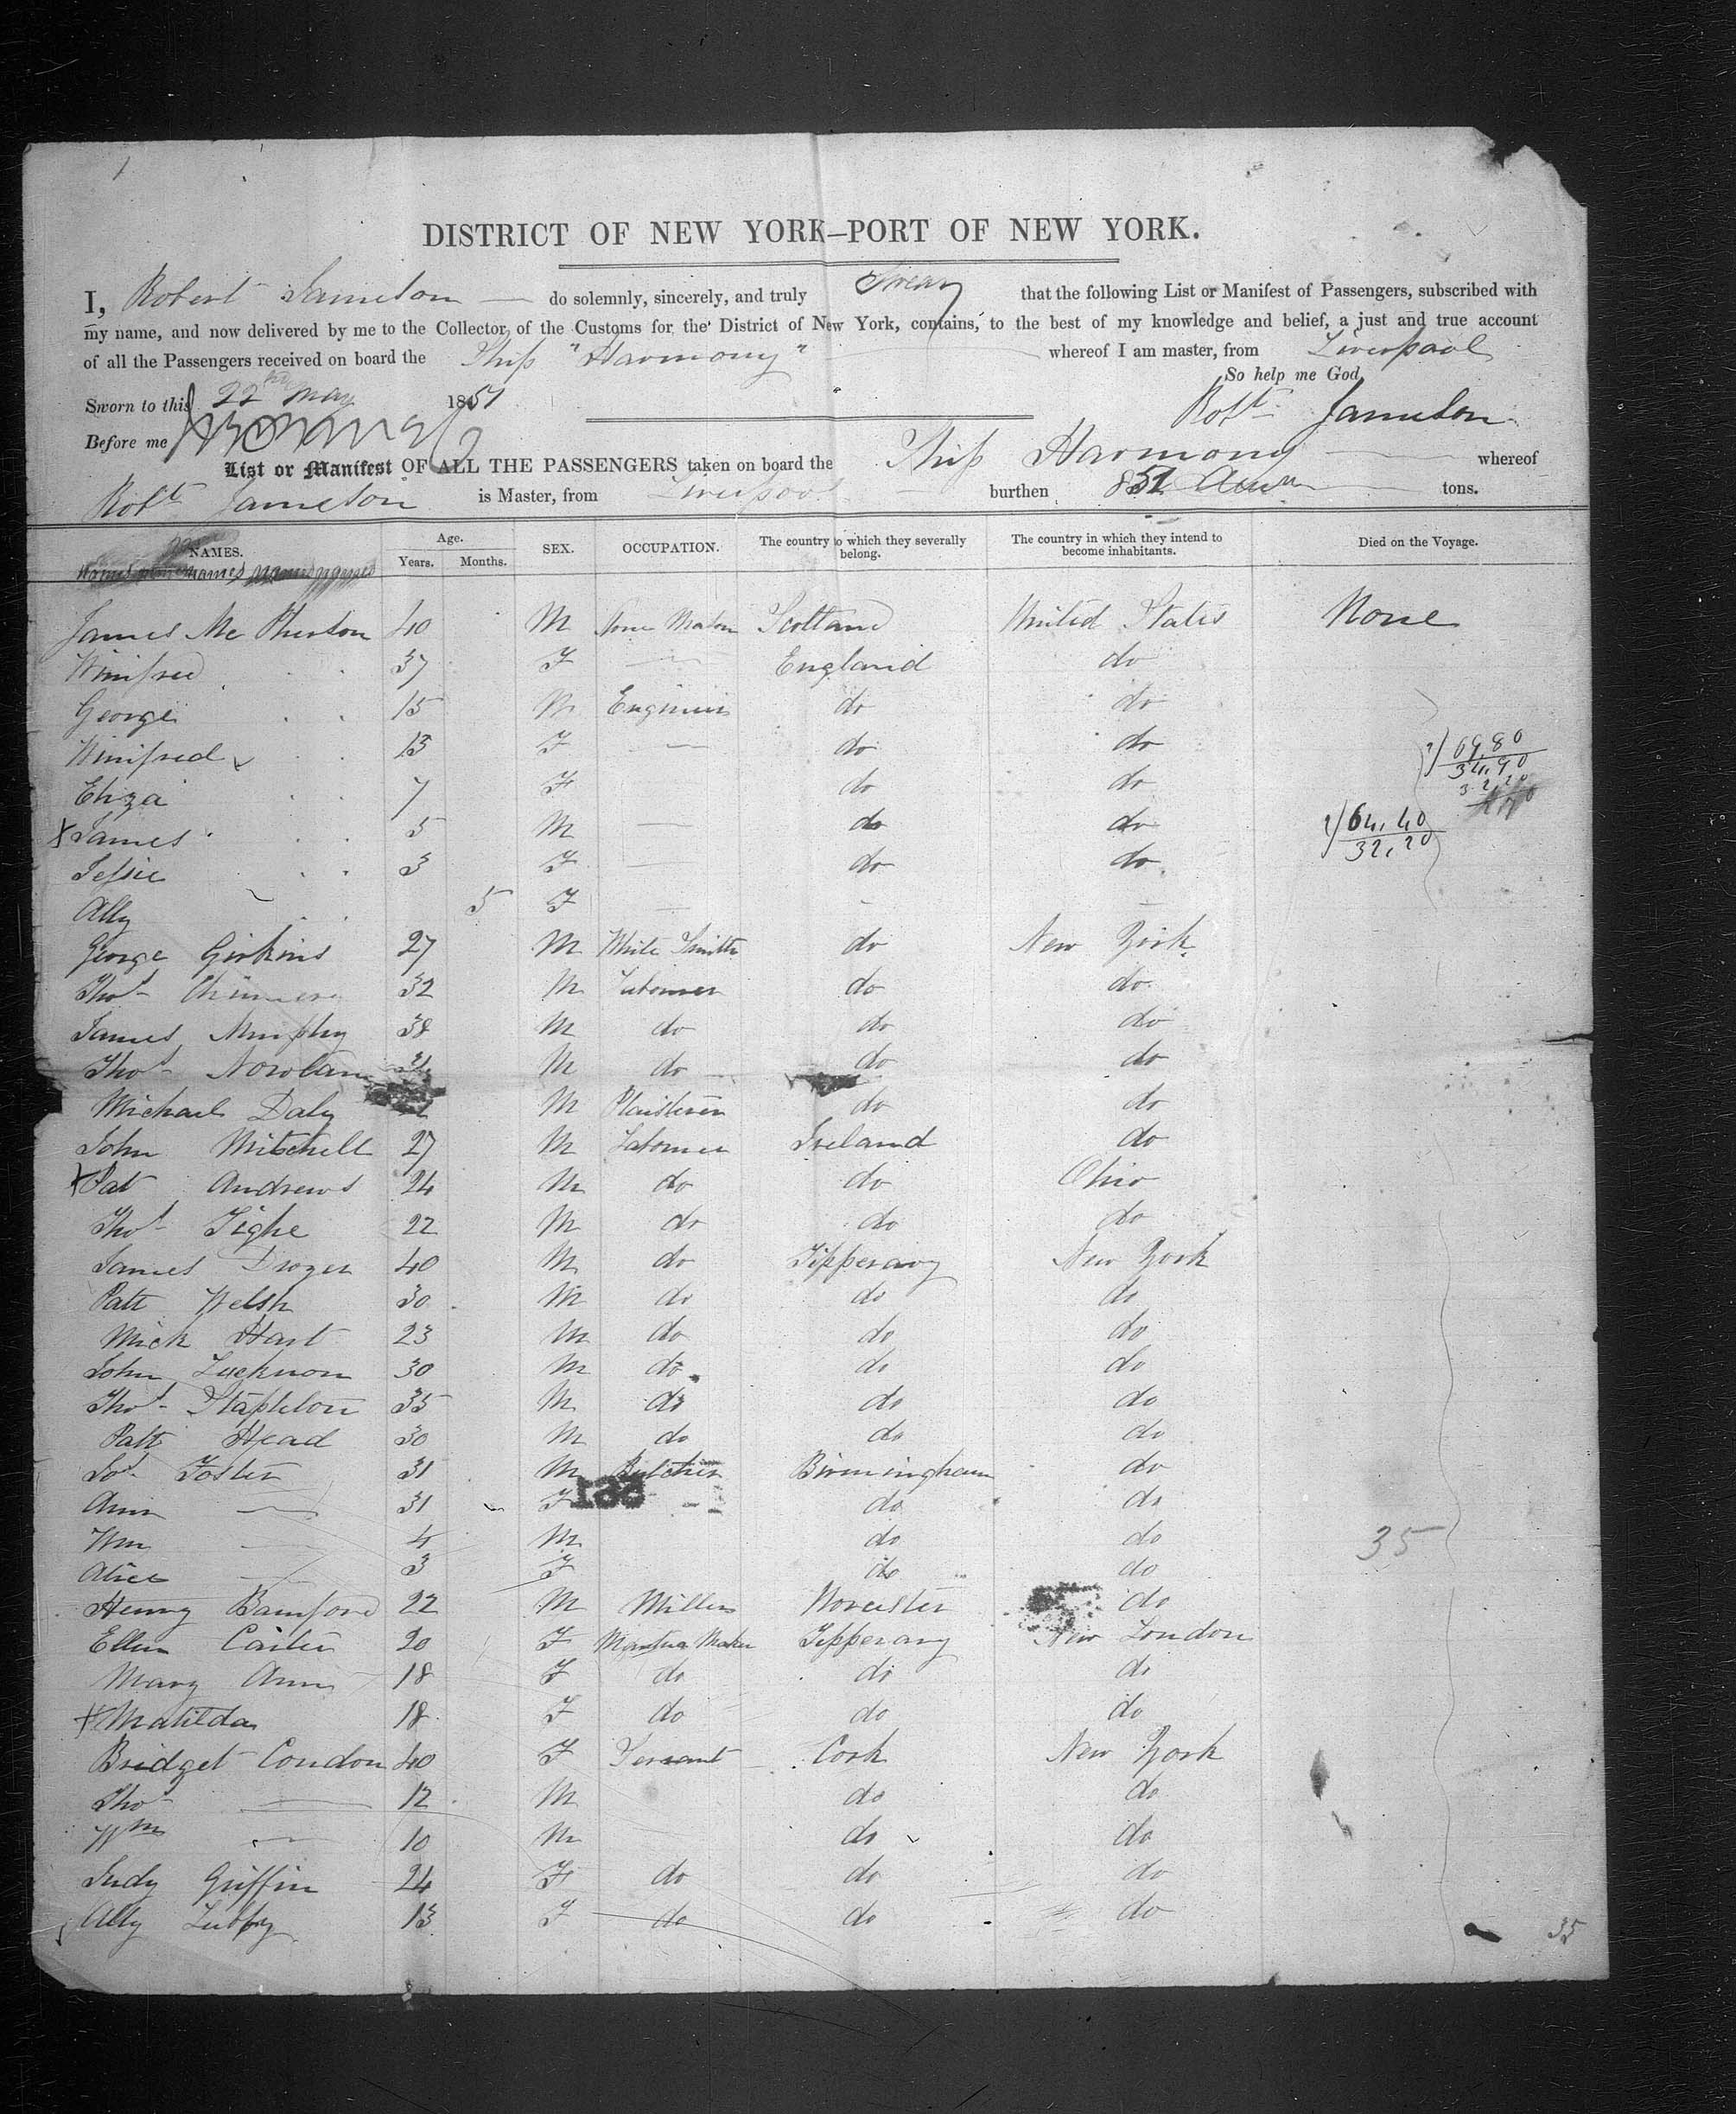 DISTRICT OF NEW YORK–PORT OF NEW YORK.
I, Robert Jameson do solemnly, sincerely, and truly Swear that the following List or Manifest of Passengers, subscribed with
my name, and now delivered by me to the Collector of the Customs for the District of New York, contains, to the best of my knowledge and belief, a just and true account
of all the Passengers received on board the Ship "Harmony" whereof I am master, from Liverpool
So help me God
Sworn to this 22nd May 1851
Robt Jameson
Before me
List or Manifest OF ALL THE PASSENGERS taken on board the Ship Harmony whereof
Robt Jameson is Master, from Liverpool burthen 851 tons.
NAMES. Age. Years. Months. SEX. OCCUPATION. The country to which they severally belong. The country in which they intend to become inhabitants. Died on the Voyage.
James Mc Pherson 40 M Stone Mason Scotland United States None
Winifred 37 F England do
George 15 M Engineer do do
Winifred 13 F do do
Eliza 7 F do do
X James 5 M do do
Jessie 3 F do do
Ally 5 F
George Girkins 27 M White Smith do New York
Thos 32 M Labourer do do
James Murphy 38 M do do do
Thos Nowlan M do do do
Michael Daly M Plaisterer do do
John Mitchell 27 M Labourer Ireland do
X Pat Andrews 24 M do do Ohio
Thos Tighe 22 M do do do
James 40 M do Tipperary New York
Patt Welsh 30 M do do do
Mick Hart 23 M do do do
John 30 M do do do
Thos Stapleton 35 M do do do
Patt Head 30 M do do do
Jos Foster 31 M Butcher Birmingham do
Ann 31 F do do
Wm 4 M do do
Alice 3 F do do
Henry Bamford 22 M Miller Worcester do
Ellen Carter 20 F Mantua Maker Tipperary New London
Mary Ann 18 F do do do
X Matilda 18 F do do do
Bridget Condon 40 F Servant Cork New York
Thos 12 M do do
Wm 10 M do do
Judy Griffin 24 F do do do
Ally 13 F do do do
2) 69,80
34,90
2) 64,40
32,20
35
35